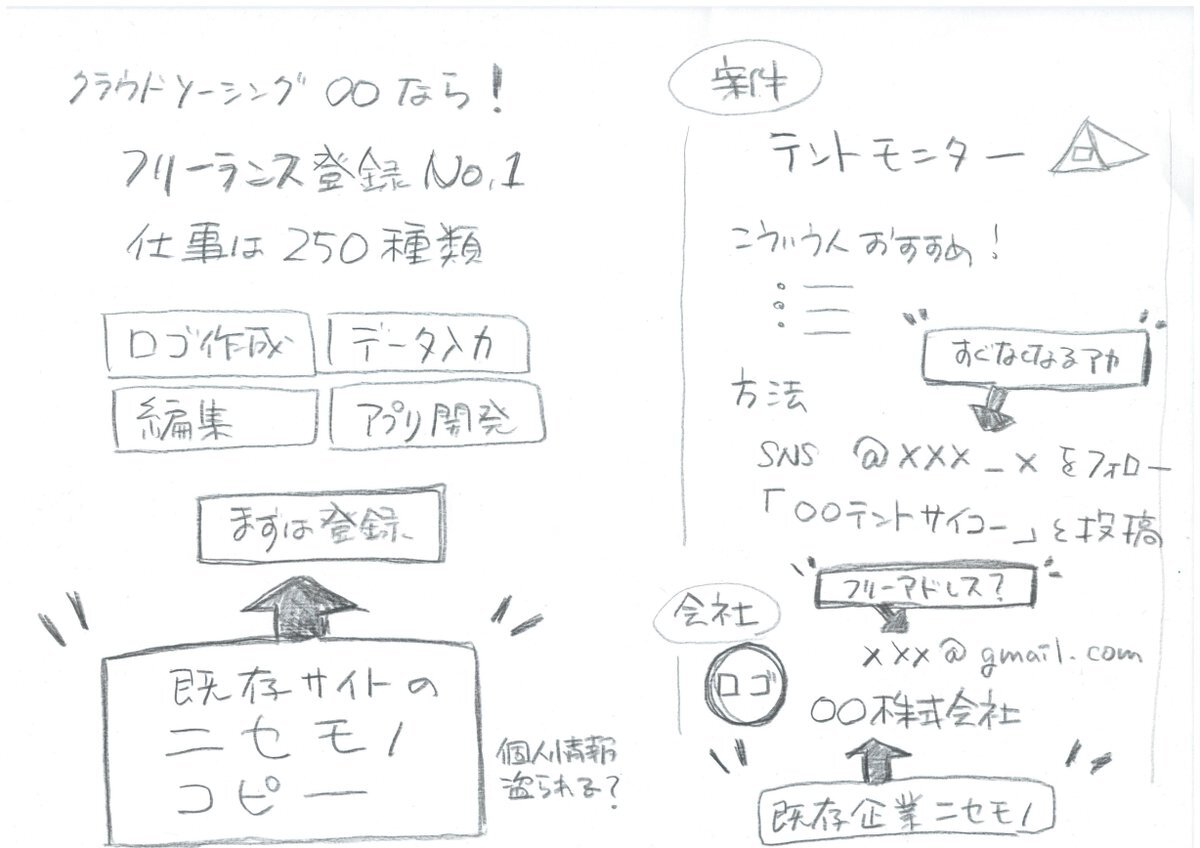 クラウドソーシング〇〇なら！
フリーランス登録No.1
仕事は250種類
ロゴ作成
データ入力
編集
アプリ開発
まずは登録
既存サイトの
ニセモノ
コピー
個人情報
盗られる？
案件
テントモニター
こういう人おすすめ！
すぐなくなるアカ
方法
SNS @xxx_xをフォロー
「〇〇テントサイコー」を投稿
フリーアドレス？
会社
xxx@gmail.com
ロゴ
〇〇株式会社
既存企業ニセモノ